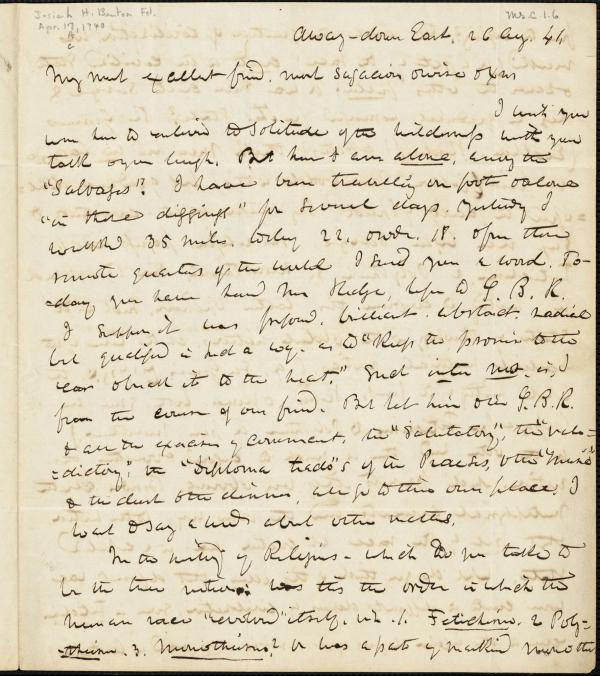 Josiah H. Benton Fd.
Apr. 17, 1940
Ms. C. 1.6
Away-down East. 26 Aug. 46
My most excellent friend. most sagacious
I wish you
were here to enliven the solitude of the wilderness with your
talk or your laugh. But here I am alone, among the
"Salvages". I have been travelling on foot & alone
"in these diggings" for several days. Yesterday I
walked 35 miles. today 22. 18. from these
remote quarters of the world I send you a word. To-
=day you have heard Mr Hedge, before the P. B. K.
I suppose it was profound. brilliant. abstract. radical
but qualified in such a way. as to "Keep the promise to the
ear & break it to the heart." Such inter nos. is, I
from the course of our friend. But let him & the P.B.K.
& all the exercises of Commencement, the "Salutatory", the "vale-
=dictory", the "Diploma trado"s of the Praeses, & the "Music"
& the dust & the dinner, all go to their own place, I
want to say a word about other matters.
In the history of Religions - which do you take to
be the true was this the order in which the
human race "evolved" itself. viz. 1. Fetichism. 2 Poly-
=theism. 3. Monotheism? or was a part of mankind monothe